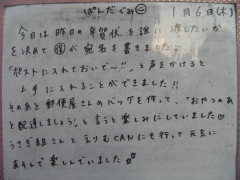 ぱんだぐみ☺
1月6日(木)
今日は昨日の年賀状を誰に渡したいか
を決めて 宛名を書きました。
「ポストに入れておいで〜!!」と声をかけると
上手に入れることができました!!
その後と郵便屋さんのバッグを作って、「おやつのあ
と配達しましょう!」と言うと楽しみにしていました♡
うさぎ組さんとえりもCANにも行って元気に
あそんで楽しんでいました